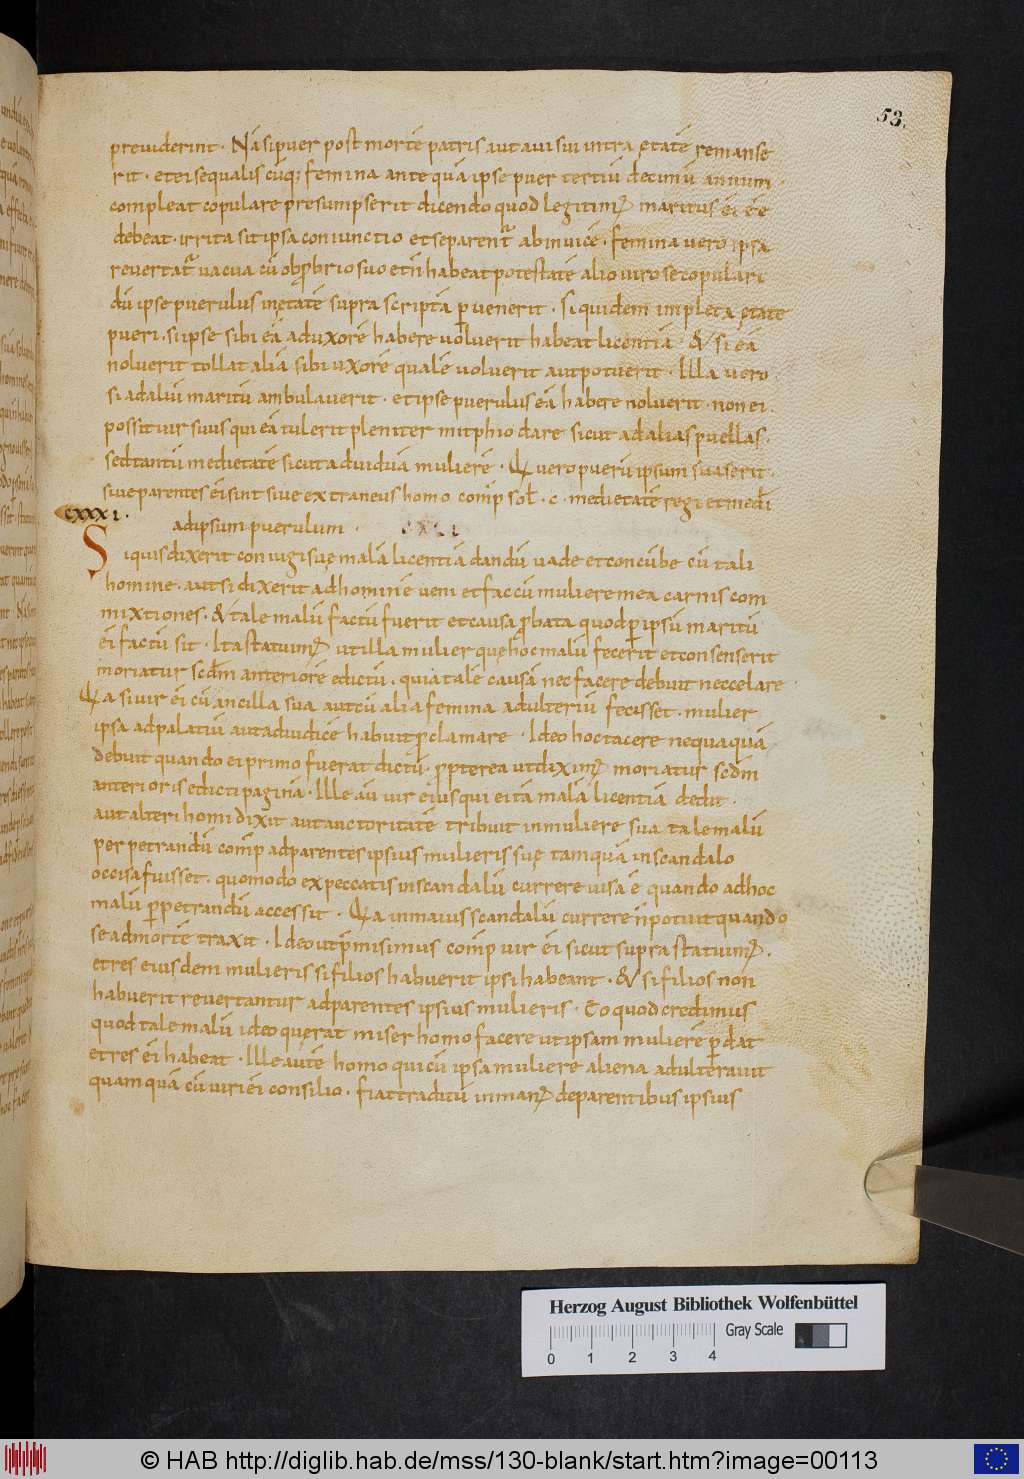 53.
previderint. Nā si puer post mortē patris aut aui sui intra ętatē remanse
rit. et ei sequalis cūq; femina ante quā ipse puer tertiū decimū annum
compleat copulare presumpserit dicendo quod legitimꝰ maritus ēi ēē
debeat. irrita sit ipsa coniunctio et separentʳ ab invicē. femina vero ipsa
revertatʳ vacua cū obprbrio suo et n̄ habeat potestatē alio viro se copulari
dū ipse puerulus in ętatē supra scriptā ꝑvenerit. Si quidem impleta ętate
pueri. si ipse sibi eā ad uxorē habere voluerit habeat licentiā & si eā
noluerit tollat aliā sibi uxorē qualē voluerit aut potuerit. Illa vero
si ad aliū maritū ambulaverit. et ipse puerulus eā habere noluerit. non ei
possit vir suus qui eā tulerit pleniter mitphio dare sicut ad alias puellas.
sed tantū medietatē sicut ad viduā mulierē. Q vero puerū ipsum suaserit.
sive parentes ēi sint sive extraneus homo. comp̄ sol̄. c. medietatē regi et medī
CXXXI.
ad ipsum puerulum.
Siquis dixerit coniugi suę malā licentiā dandū vade et concūbe cū tali
homine. aut si dixerit ad hominē veni et fac cū muliere mea carnis com
mixtiones. & tale malū factū fuerit et causa ꝓbata quod ꝑ ipsū maritū
ēi factū sit. Ita statuimꝰ ut illa mulier quę hoc malū fecerit et consenserit
moriatur scdm̄ anteriorē edictū. quia talē causā nec facere debuit nec celare
Qa si vir ēi cū ancilla sua aut cū alia femina adulteriū fecisset. mulier
ipsa ad palatiū aut ad iudicē habuit ꝓclamare. Ideo hoc tacere nequaquā
debuit quando ei primo fuerat dictū. ꝓpterea ut diximꝰ moriatur scdm̄
anterioris edicti paginā. Ille aū vir eius qui ei tā malā licentiā dedit.
aut alteri homi dixit aut auctoritatē tribuit in muliere sua tale malū
perpetrandū comp̄ ad parentes ipsius mulieris suę tamquā in scandalo
occisa fuisset. quomodo ex peccatis in scandalū currere visa ē quando ad hoc
malū ꝑpetrandū accessit. Qa in maius scandalū currere n̄ potuit quando
se ad mortē traxit. Ideo ut p̄misimus comp̄ vir ēi sicut supra statuimꝰ.
et res eiusdem mulieris si filios habuerit ipsi habeant. & si filios non
habuerit revertantur ad parentes ipsius mulieris. Eo quod credimus
quod tale malū ideo quęrat miser homo facere ut ipsam mulierē ꝑdat
et res ēi habeat. Ille autē homo qui cū ipsa muliere aliena adulteravit
quamquā cū viri ēi consilio. fiat traditū in manꝰ de parentibus ipsius
Herzog August Bibliothek Wolfenbüttel
Gray Scale
0 1 2 3 4
© HAB http://diglib.hab.de/mss/130-blank/start.htm?image=00113